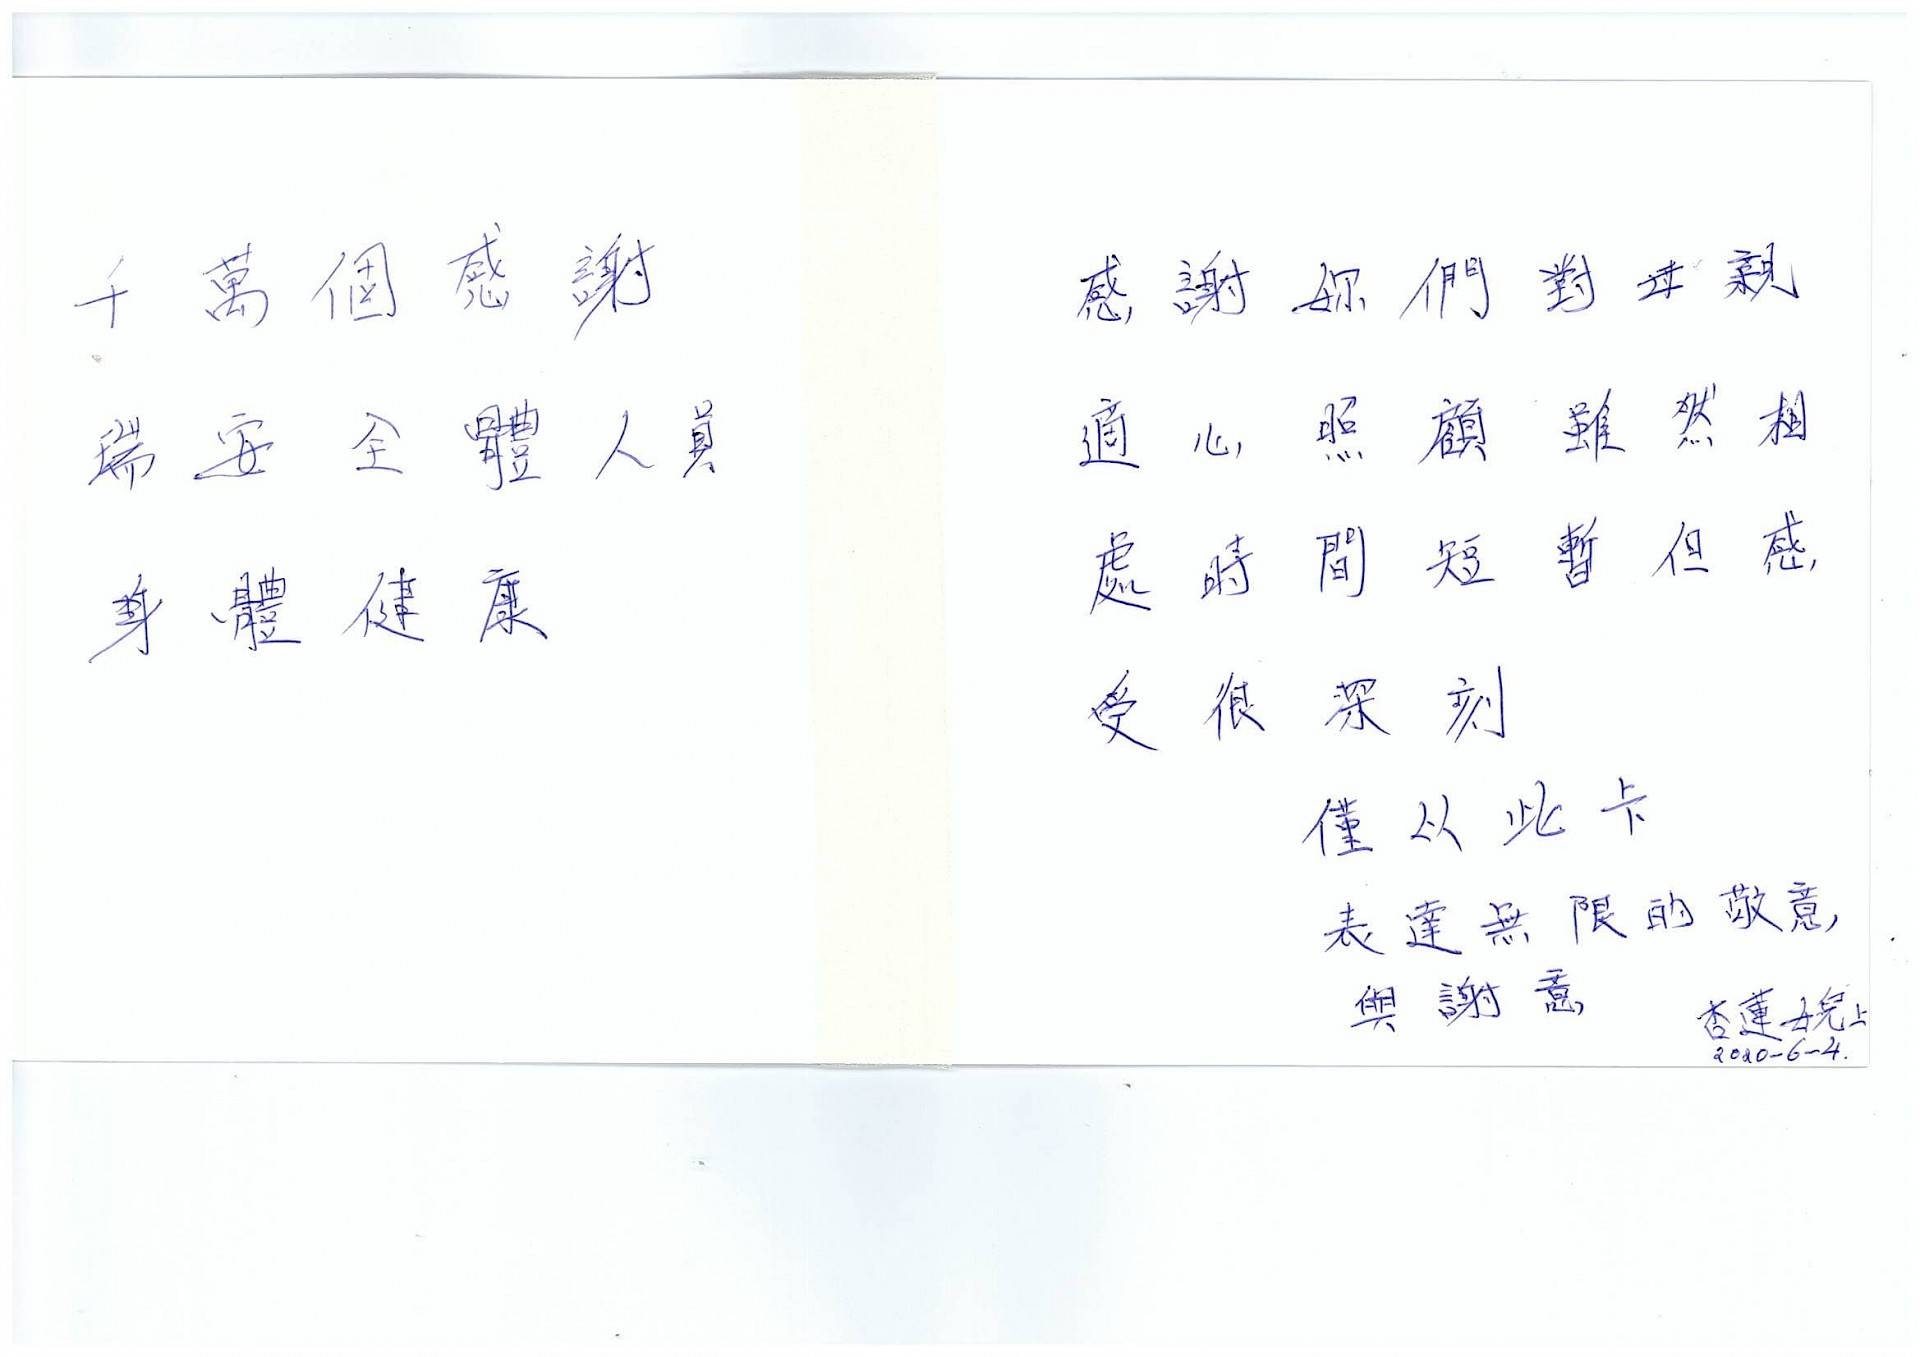 千萬個感謝
瑞安全體人員
身體健康
感謝妳們對母親
適心照顧雖然相
處時間短暫但感
受很深刻
僅从此卡
表達無限的敬意
與謝意
杏蓮女兒上
2020-6-4.